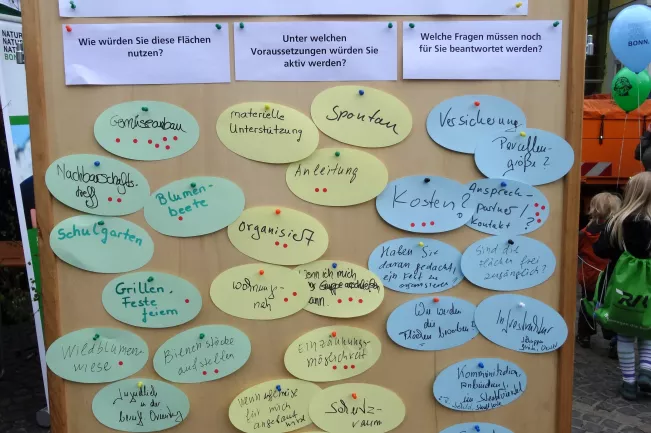 Wie würden Sie diese Flächen
nutzen?
Unter welchen
Voraussetzungen würden Sie
aktiv werden?
Welche Fragen müssen noch
für Sie beantwortet werden?
Gemüseanbau
Nachbarschafts-
treff
Blumen-
beete
Schulgarten
Grillen,
Feste
feiern
Wildblumen
wiese
Bienenstöcke
aufstellen
Jugendlich
in der
materielle
Unterstützung
Spontan
Anleitung
organisiert
wohnungs-
nah
wenn ich mich
Gruppe anschließen
kann.
Einzäunungs-
möglichkeit
für mich
angebaut wird
Schutz-
raum
Versicherung
Parzellen-
größe?
Kosten?
Ansprech-
partner/
Kontakt!?
Haben Sie
daran gedacht,
ein Fest zu
organisieren
Sind die
Flächen frei
zugänglich?
Wo werden
die
Flächen
Infrastruktur
Kommunikation
BONN.